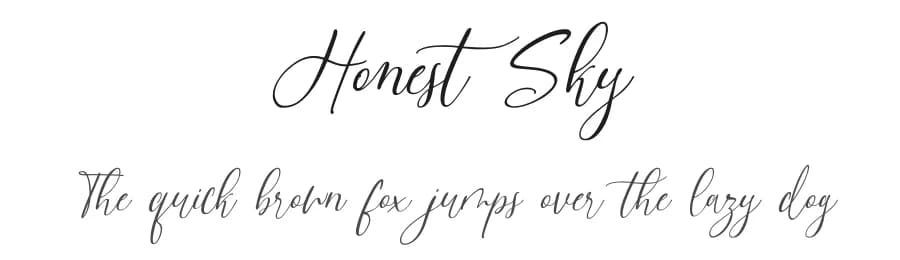 Honest Sky
The quick brown fox jumps over the lazy dog